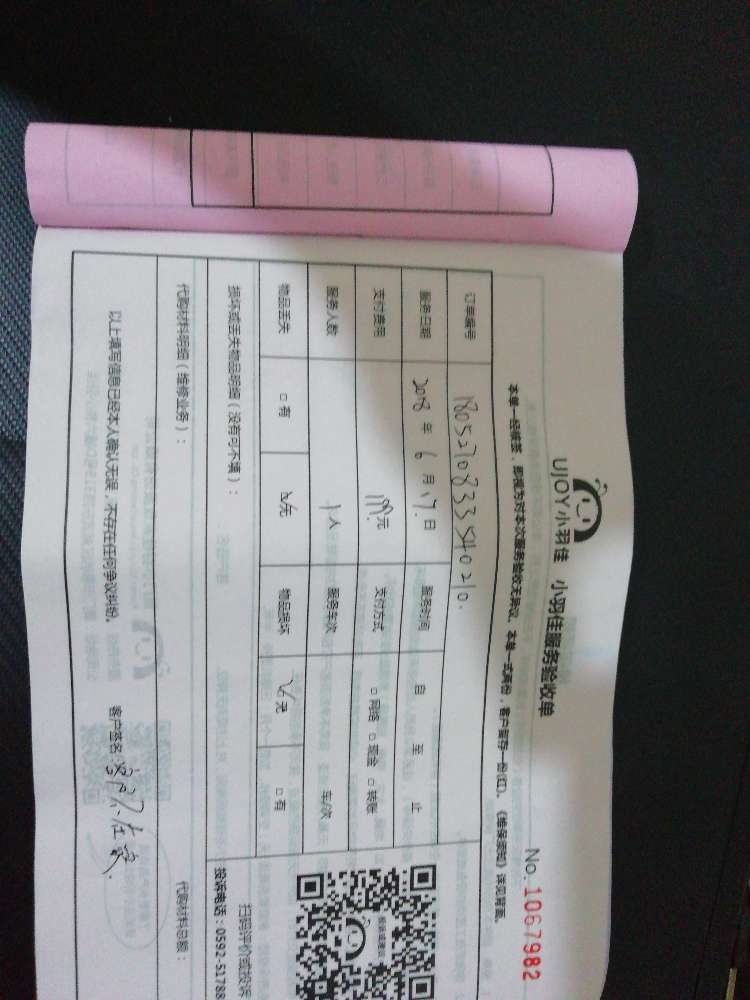 UJOY小羽佳 小羽佳服务验收单
No. 1067982
本单一经接签，即视为对本次服务验收无异议。本单一式两份，客户留存一份(红)。《维保须知》详见背面。
订单编号 1805270833540210.
服务日期 2018 年 6 月 17 日 服务时间 自 至 止
支付费用 199元 支付方式 □ 网络 □ 现金 □ 转账
服务人数 1 人 服务车次 车/次
物品丢失 □ 有 ☑ 无 物品损坏 ☑ 无 □ 有
损坏或丢失物品明细（没有可不填）：
扫码评价或投诉
投诉电话：0592-51788
代购材料明细（维修业务）：
代购材料总额：
以上填写信息已经本人确认无误，不存在任何争议纠纷。
客户签名